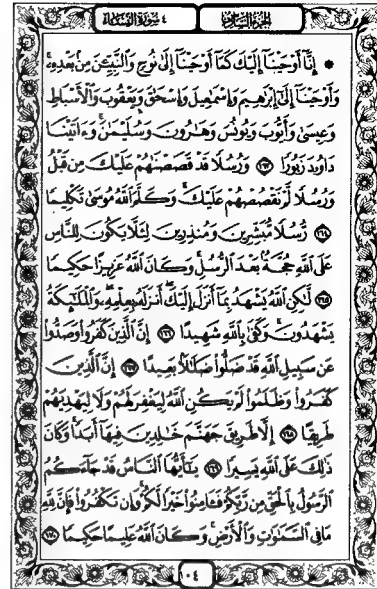 الجزء السادس
٤ سورة النساء
* إِنَّآ أَوْحَيْنَآ إِلَيْكَ كَمَآ أَوْحَيْنَآ إِلَىٰ نُوحٍ وَٱلنَّبِيِّـۧنَ مِنۢ بَعْدِهِۦۚ
وَأَوْحَيْنَآ إِلَىٰٓ إِبْرَٰهِيمَ وَإِسْمَٰعِيلَ وَإِسْحَٰقَ وَيَعْقُوبَ وَٱلْأَسْبَاطِ
وَعِيسَىٰ وَأَيُّوبَ وَيُونُسَ وَهَٰرُونَ وَسُلَيْمَٰنَۚ وَءَاتَيْنَا
دَاوُۥدَ زَبُورًا ١٦٣ وَرُسُلًا قَدْ قَصَصْنَٰهُمْ عَلَيْكَ مِن قَبْلُ
وَرُسُلًا لَّمْ نَقْصُصْهُمْ عَلَيْكَۚ وَكَلَّمَ ٱللَّهُ مُوسَىٰ تَكْلِيمًا
١٦٤ رُّسُلًا مُّبَشِّرِينَ وَمُنذِرِينَ لِئَلَّا يَكُونَ لِلنَّاسِ
عَلَى ٱللَّهِ حُجَّةٌۢ بَعْدَ ٱلرُّسُلِۚ وَكَانَ ٱللَّهُ عَزِيزًا حَكِيمًا
١٦٥ لَّٰكِنِ ٱللَّهُ يَشْهَدُ بِمَآ أَنزَلَ إِلَيْكَۖ أَنزَلَهُۥ بِعِلْمِهِۦۖ وَٱلْمَلَٰٓئِكَةُ
يَشْهَدُونَۚ وَكَفَىٰ بِٱللَّهِ شَهِيدًا ١٦٦ إِنَّ ٱلَّذِينَ كَفَرُوا۟ وَصَدُّوا۟
عَن سَبِيلِ ٱللَّهِ قَدْ ضَلُّوا۟ ضَلَٰلًۢا بَعِيدًا ١٦٧ إِنَّ ٱلَّذِينَ
كَفَرُوا۟ وَظَلَمُوا۟ لَمْ يَكُنِ ٱللَّهُ لِيَغْفِرَ لَهُمْ وَلَا لِيَهْدِيَهُمْ
طَرِيقًا ١٦٨ إِلَّا طَرِيقَ جَهَنَّمَ خَٰلِدِينَ فِيهَآ أَبَدًاۚ وَكَانَ
ذَٰلِكَ عَلَى ٱللَّهِ يَسِيرًا ١٦٩ يَٰٓأَيُّهَا ٱلنَّاسُ قَدْ جَآءَكُمُ
ٱلرَّسُولُ بِٱلْحَقِّ مِن رَّبِّكُمْ فَـَٔامِنُوا۟ خَيْرًا لَّكُمْۚ وَإِن تَكْفُرُوا۟ فَإِنَّ لِلَّهِ
مَا فِى ٱلسَّمَٰوَٰتِ وَٱلْأَرْضِۚ وَكَانَ ٱللَّهُ عَلِيمًا حَكِيمًا ١٧٠
١٠٤